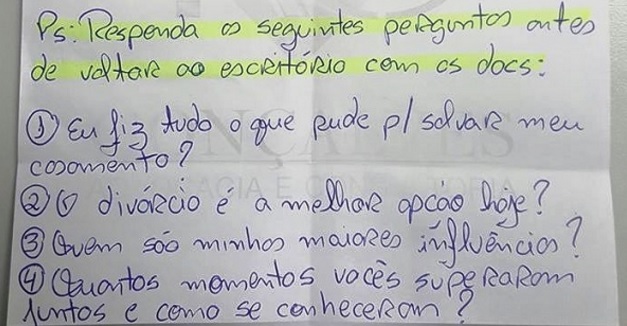 Ps: Responda as seguintes perguntas antes
de voltar ao escritório com os docs:
① Eu fiz tudo o que pude p/ salvar meu
casamento?
② O divórcio é a melhor opção hoje?
③ Quem são minhas maiores influências?
④ Quantos momentos vocês superaram
juntos e como se conheceram?